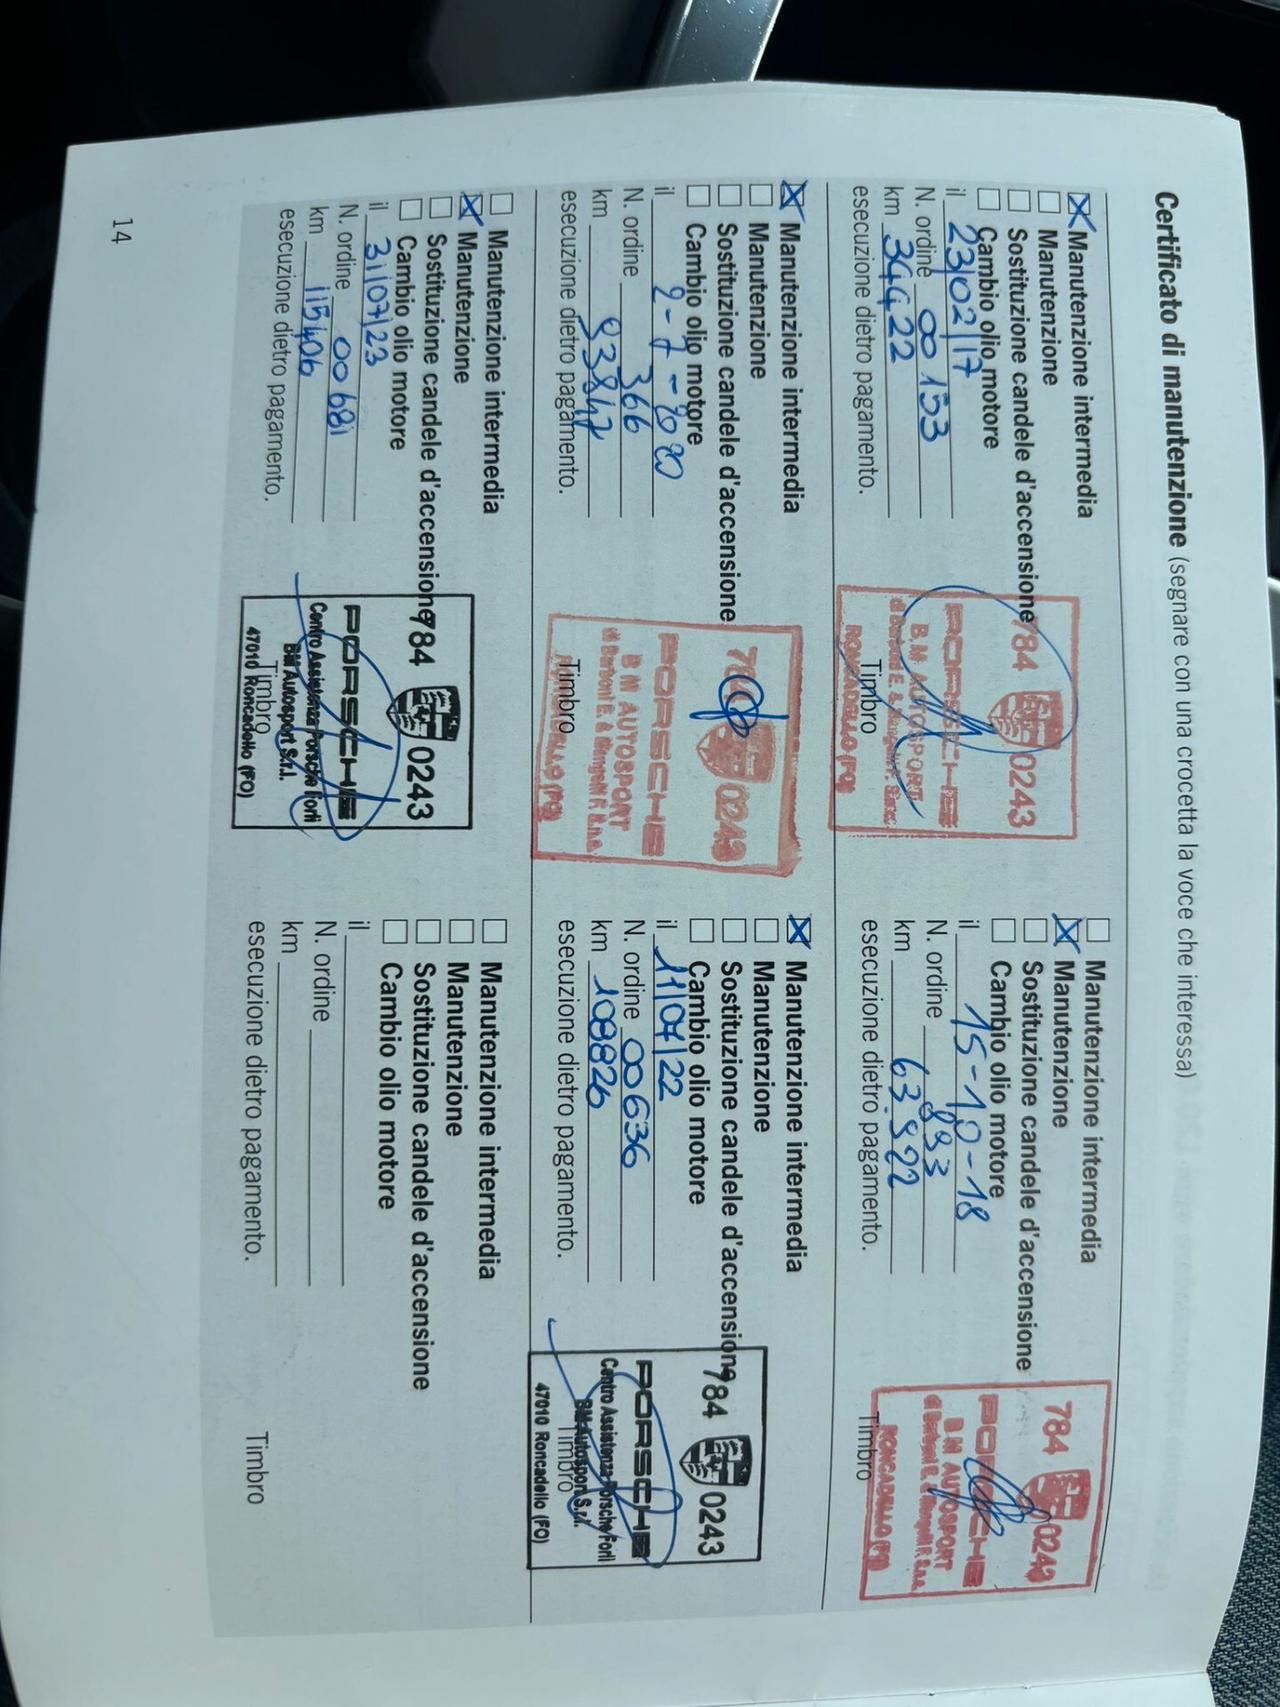 Certificato di manutenzione (segnare con una crocetta la voce che interessa)
Manutenzione intermedia
Manutenzione
Sostituzione candele d'accensione
Cambio olio motore
il 23/02/17
N. ordine 00 153
km 34422
esecuzione dietro pagamento.
784 0243
PORSCHE
B.M. AUTOSPORT
RONCADELLO (FO)
Timbro
Manutenzione intermedia
Manutenzione
Sostituzione candele d'accensione
Cambio olio motore
il 15-10-18
N. ordine 893
km 63.922
esecuzione dietro pagamento.
784 0243
PORSCHE
B M AUTOSPORT
RONCADELLO (FO)
Timbro
Manutenzione intermedia
Manutenzione
Sostituzione candele d'accensione
Cambio olio motore
il 2-7-2020
N. ordine 366
km 93847
esecuzione dietro pagamento.
784 0243
PORSCHE
B M AUTOSPORT
RONCADELLO (FO)
Timbro
Manutenzione intermedia
Manutenzione
Sostituzione candele d'accensione
Cambio olio motore
il 11/04/22
N. ordine 00636
km 108826
esecuzione dietro pagamento.
784 0243
PORSCHE
Centro Assistenza Porsche Forlì
BM Autosport S.r.l.
47010 Roncadello (FO)
Timbro
Manutenzione intermedia
Manutenzione
Sostituzione candele d'accensione
Cambio olio motore
il 31/07/23
N. ordine 00681
km 115406
esecuzione dietro pagamento.
784 0243
PORSCHE
Centro Assistenza Porsche Forlì
BM Autosport S.r.l.
47010 Roncadello (FO)
Timbro
Manutenzione intermedia
Manutenzione
Sostituzione candele d'accensione
Cambio olio motore
il
N. ordine
km
esecuzione dietro pagamento.
Timbro
14